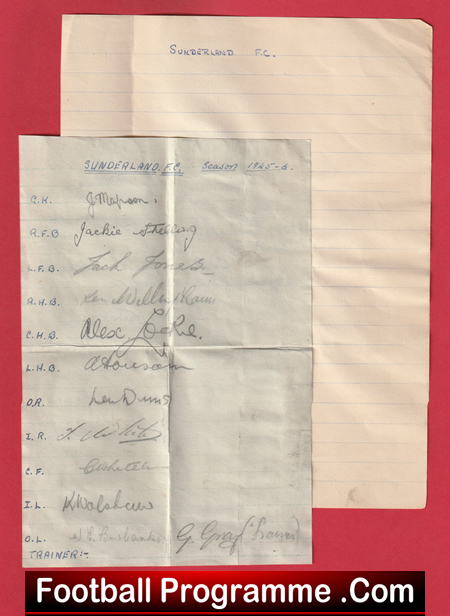 SUNDERLAND F.C.
SUNDERLAND. F.C. Season 1945-6.
G.K. J Mapson.
R.F.B Jackie Stelling
L.F.B. Jack Jones
R.H.B. Len
C.H.B. Alex Lockie.
L.H.B. A Housam
O.R. Len Duns
I.R.
C.F. C Whitelum
I.L. K Walshaw
O.L. G. Gray (Trainer)
TRAINER:-
Football Programme .Com